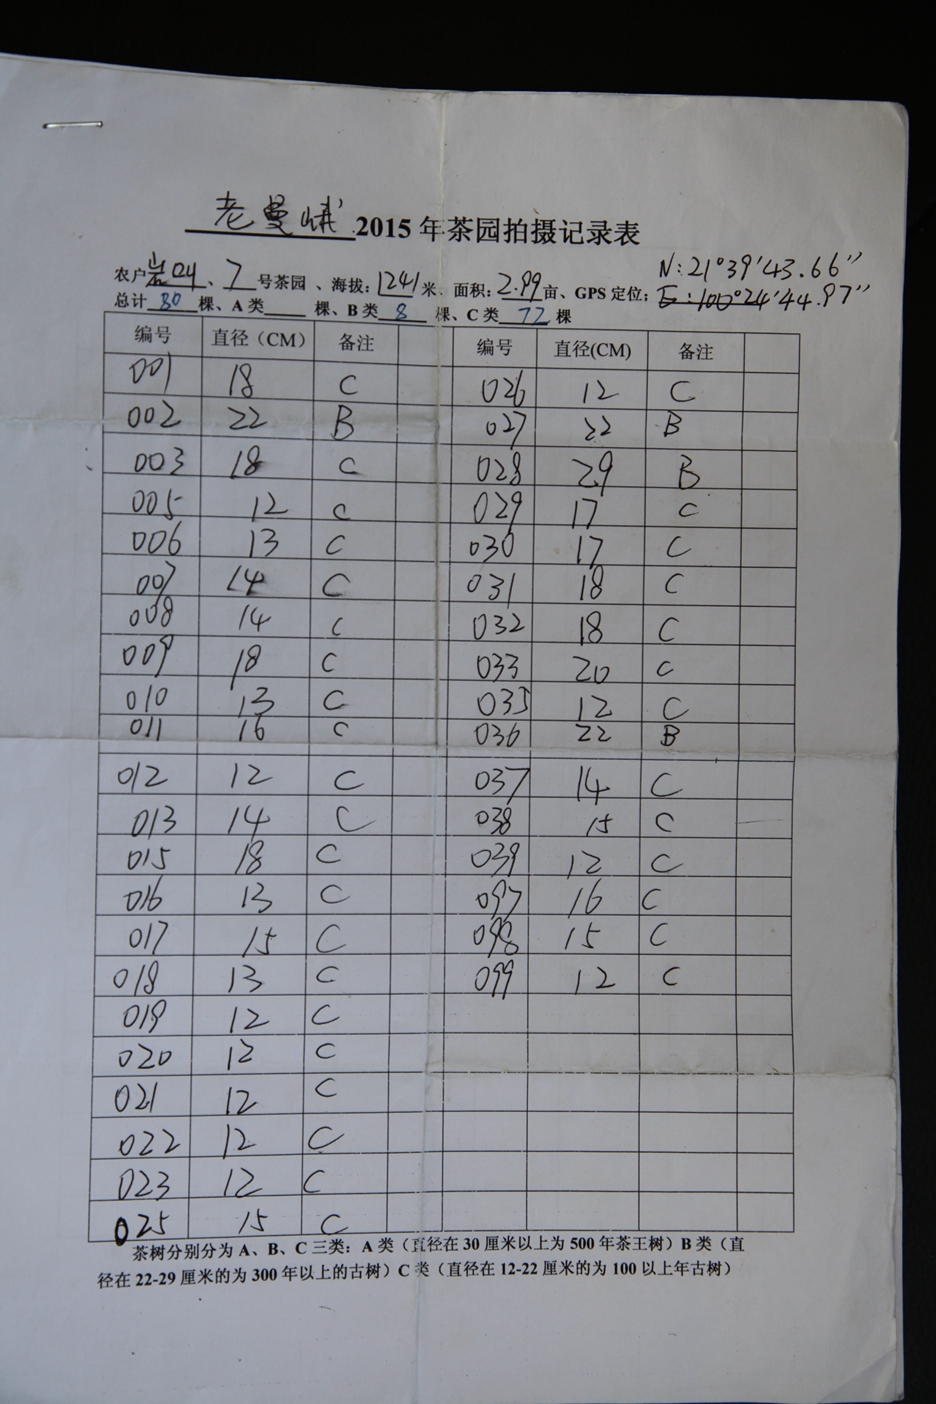 老曼峨 2015 年茶园拍摄记录表
N:21°39′43.66″
农户岩叫、7 号茶园 、海拔:1241米、面积:2.99亩、GPS 定位; E:100°24′44.97″
总计 80 棵、A 类 棵、B 类 8 棵、C 类 72 棵
编号 直径（CM） 备注 编号 直径(CM) 备注
001 18 C 026 12 C
002 22 B 027 22 B
003 18 C 028 29 B
005 12 C 029 17 C
006 13 C 030 17 C
007 14 C 031 18 C
008 14 C 032 18 C
009 18 C 033 20 C
010 13 C 035 12 C
011 16 C 036 22 B
012 12 C 037 14 C
013 14 C 038 15 C
015 18 C 039 12 C
016 13 C 097 16 C
017 15 C 098 15 C
018 13 C 099 12 C
019 12 C
020 12 C
021 12 C
022 12 C
023 12 C
025 15 C
茶树分别分为 A、B、C 三类：A 类（直径在 30 厘米以上为 500 年茶王树）B 类（直
径在 22-29 厘米的为 300 年以上的古树）C 类（直径在 12-22 厘米的为 100 以上年古树）